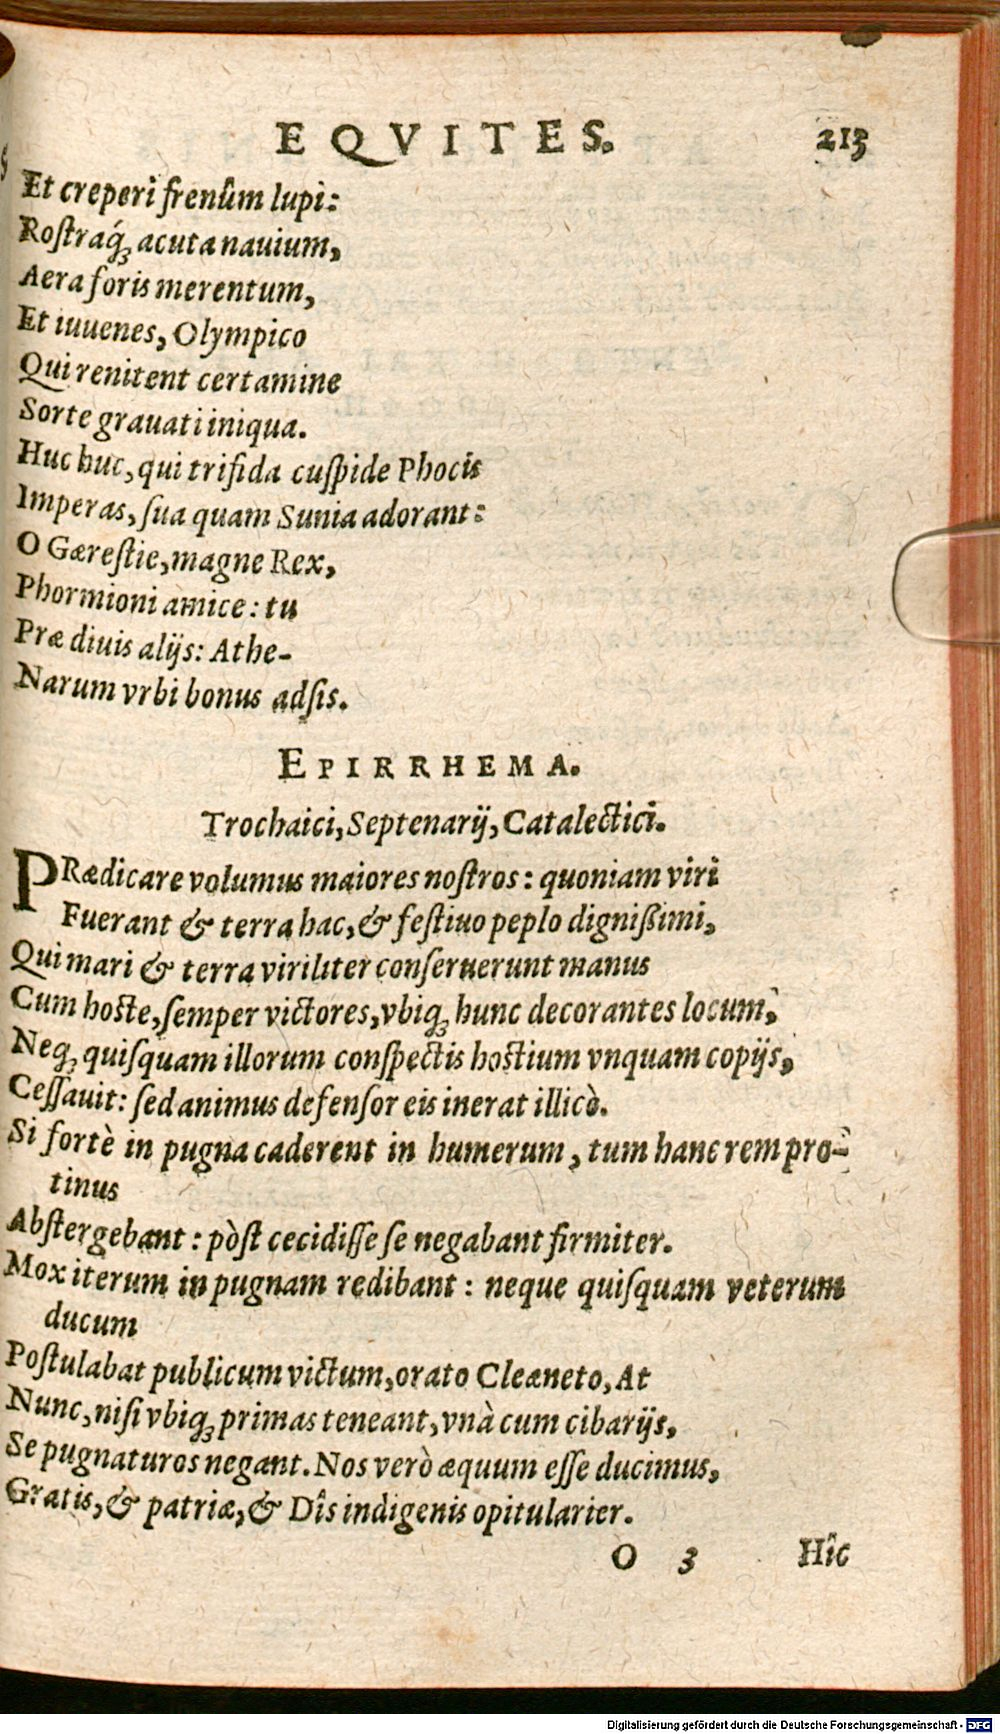 EQVITES. 213
Et creperi frenûm lupì:
Rostraq́; acuta nauium,
Aera foris merentum,
Et iuuenes, Olympico
Qui renitent certamine
Sorte grauati iniqua.
Huc huc, qui trifida cuspide Phocis
Imperas, sua quam Sunia adorant:
O Gærestie, magne Rex,
Phormioni amice: tu
Præ diuis alijs: Athe-
Narum vrbi bonus adsis.
EPIRRHEMA.
Trochaici, Septenarij, Catalectici.
PRædicare volumus maiores nostros: quoniam viri
Fuerant & terra hac, & festiuo peplo dignißimi,
Qui mari & terra viriliter conseruerunt manus
Cum hoste, semper victores, vbiq; hunc decorantes locum,
Neq; quisquam illorum conspectis hostium vnquam copijs,
Cessauit: sed animus defensor eis inerat illicò.
Si fortè in pugna caderent in humerum, tum hanc rem pro-
tinus
Abstergebant: pòst cecidisse se negabant firmiter.
Mox iterum in pugnam redibant: neque quisquam veterum
ducum
Postulabat publicum victum, orato Cleæneto, At
Nunc, nisi vbiq; primas teneant, vnà cum cibarijs,
Se pugnaturos negant. Nos verò æquum esse ducimus,
Gratis, & patriæ, & Dîs indigenis opitularier.
O 3 Hîc
Digitalisierung gefördert durch die Deutsche Forschungsgemeinschaft - DFG